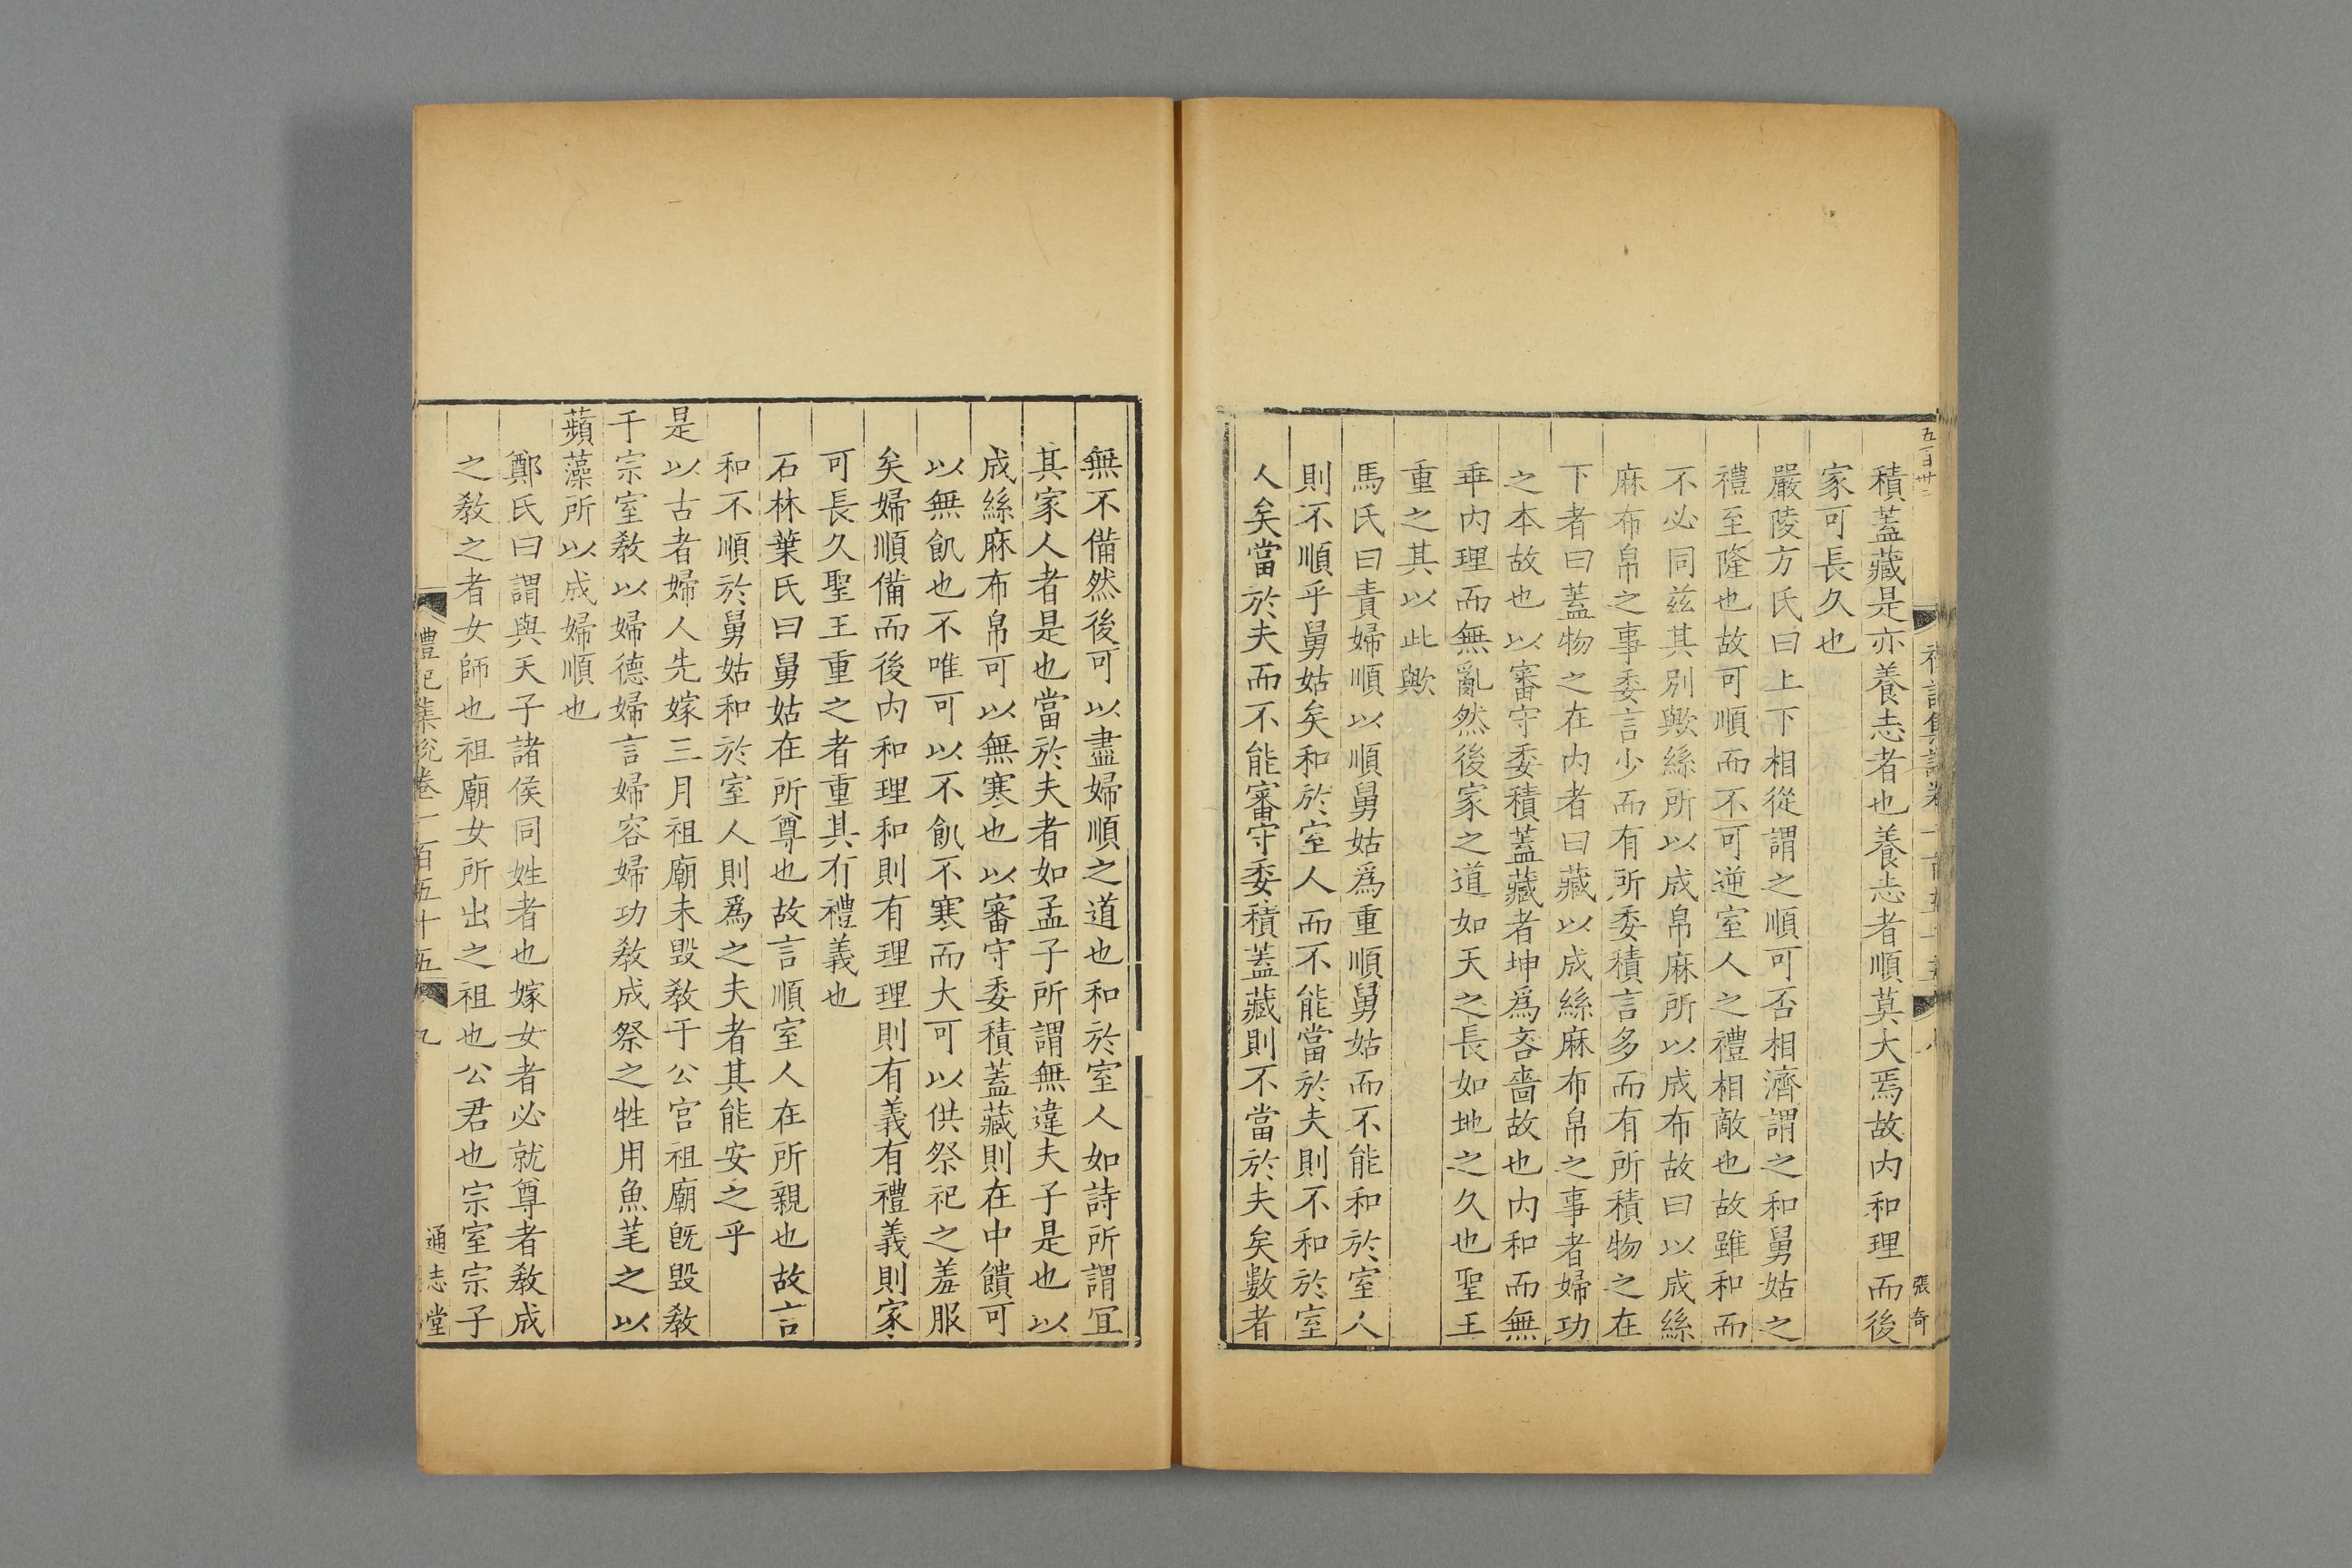 積蓋藏是亦養志者也養志者順莫大焉故内和理而後
家可長久也
嚴陵方氏曰上下相從謂之順可否相濟謂之和舅姑之
禮至隆也故可順而不可逆室人之禮相敵也故雖和而
不必同兹其別歟絲所以成帛麻所以成布故曰以成絲
麻布帛之事委言少而有所委積言多而有所積物之在
下者曰蓋物之在内者曰藏以成絲麻布帛之事者婦功
之本故也以審守委積蓋藏者坤爲吝嗇故也内和而無
乖内理而無亂然後家之道如天之長如地之久也聖王
重之其以此歟
馬氏曰責婦順以順舅姑爲重順舅姑而不能和於室人
則不順乎舅姑矣和於室人而不能當於夫則不和於室
人矣當於夫而不能審守委積蓋藏則不當於夫矣數者
張奇
無不備然後可以盡婦順之道也和於室人如詩所謂宜
其家人者是也當於夫者如孟子所謂無違夫子是也以
成絲麻布帛可以無寒也以審守委積蓋藏則在中饋可
以無飢也不唯可以不飢不寒而大可以供祭祀之羞服
矣婦順備而後内和理和則有理理則有義有禮義則家
可長久聖王重之者重其有禮義也
石林葉氏曰舅姑在所尊也故言順室人在所親也故言
和不順於舅姑和於室人則爲之夫者其能安之乎
是以古者婦人先嫁三月祖廟未毀敎于公宮祖廟旣毀敎
于宗室敎以婦德婦言婦容婦功敎成祭之牲用魚芼之以
蘋藻所以成婦順也
鄭氏曰謂與天子諸侯同姓者也嫁女者必就尊者敎成
之敎之者女師也祖廟女所出之祖也公君也宗室宗子
禮記集說卷一百五十五 九 通志堂